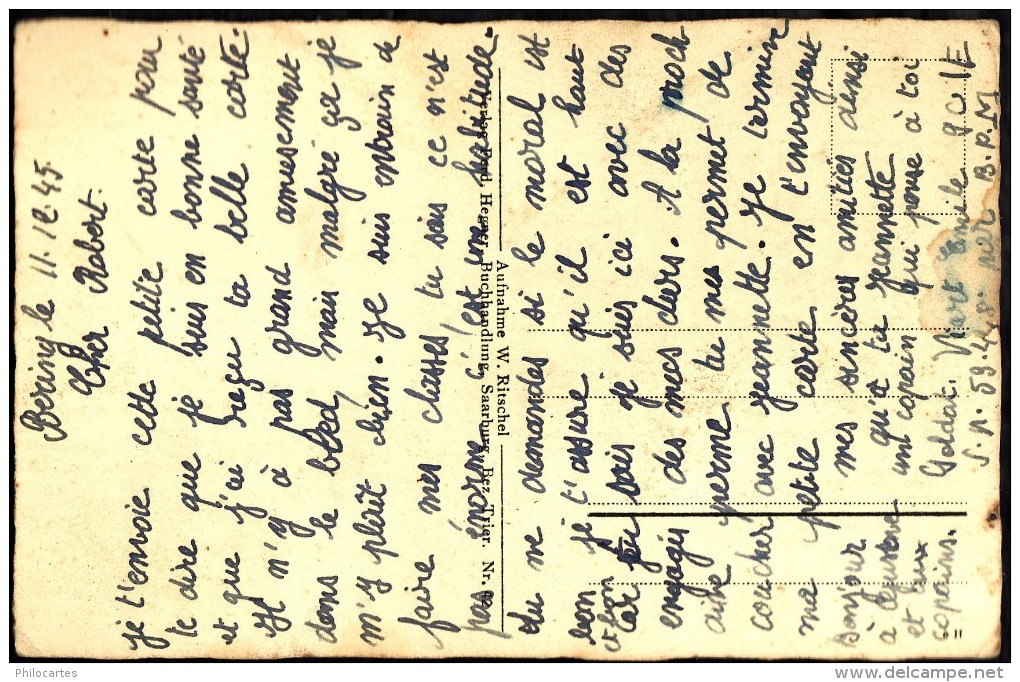 Bering le 11.12.45.
Cher Robert.
je t'envoie cette petite carte pour
te dire que je suis en bonne santé
et que j'ai reçu ta belle carte.
Il n'y à pas grand amusement
dans le bled, mais malgré ça je
m'y plait bien. Je suis entrain de
faire mes classes, tu sais ce n'est
pas énorme, c'est une habitude.
tu me demandes si le moral est
bon je t'assure qu'il est haut
et bon
car tu sais je suis ici avec des
engagés des mecs durs. A la proch
aine perme tu me permet de
coucher avec Jeannette. Je termine
ma petite carte en t'envoyant
mes sincères amitiés ainsi
qu'à ta Jeannette
un copain qui pense à toi
Soldat Emile 9 C
S.P. 59.448 B.P.M
Bonjour
à
et aux
copains.
Aufnahme W. Ritschel
Verlag Paul Hegner, Buchhandlung, Saarburg, Bez. Trier. Nr.
Philocartes
delcampe.net